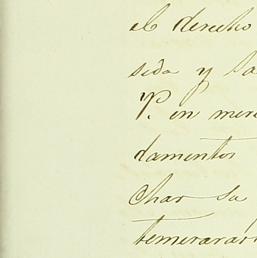 el derecho
sido y la
P. en mer
damentos
char la
temerarar